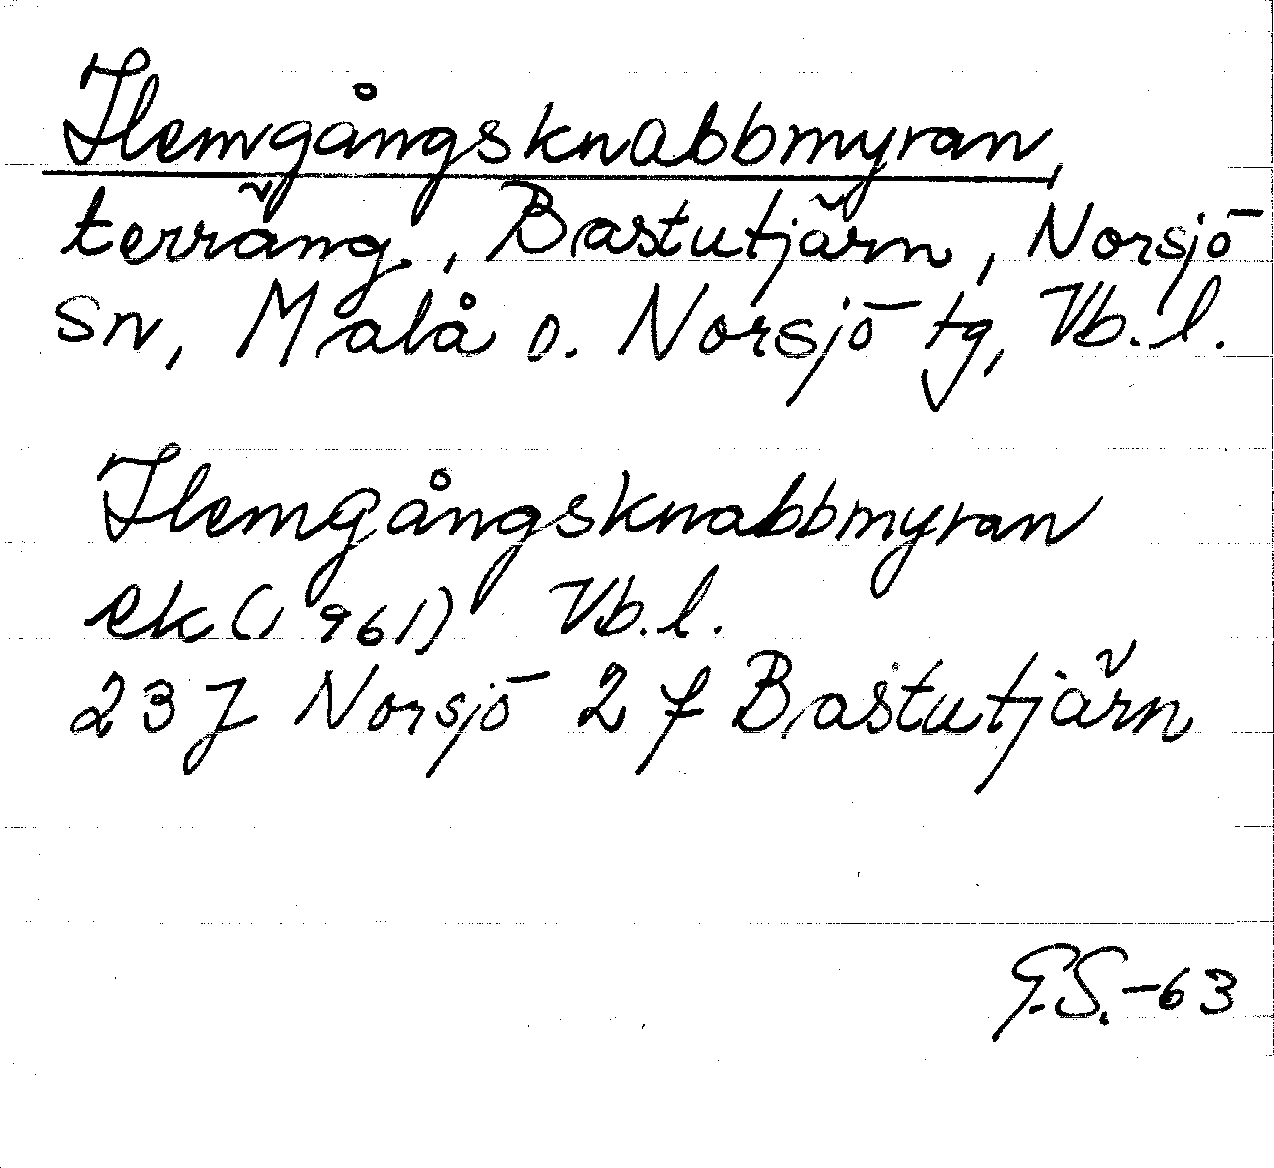 Hemgångsknabbmyran,
terräng, Bastutjärn, Norsjö
sn, Malå o. Norsjö tg, Vb.l.
Hemgångsknabbmyran
ek (1961) Vb.l.
23J Norsjö 2f Bastutjärn
G.S.-63